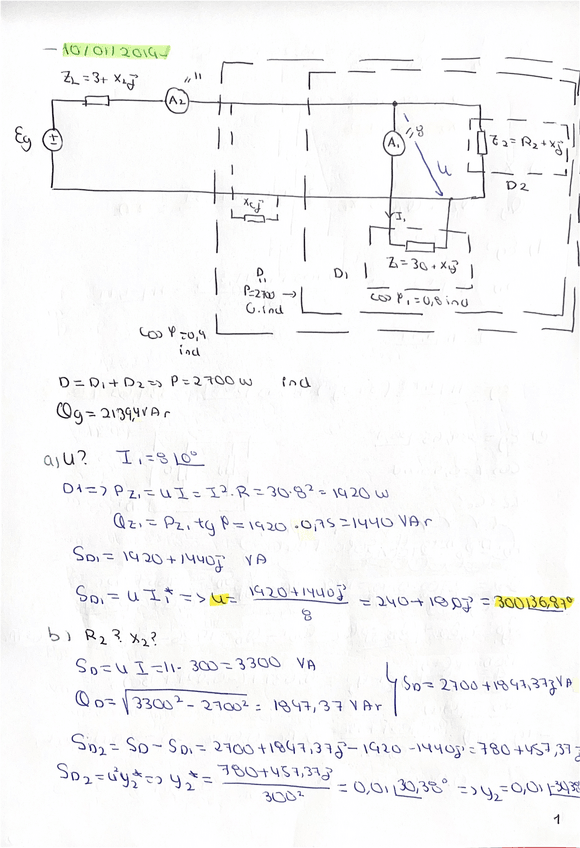 - 10/01/2014
Z_L=3+X_Lj
A2
" 11
Eg
A1
" 8
U
Z2=R2+Xj
D2
I1
Z1=30+X1j
cos φ1=0,8 ind
D1
D
"
P=2700 →
C.ind
Xcj
cos φ=0,9
ind
D=D1+D2=> P=2700 W ind
Qg=2139,4 VAr
a) U? I1=8 |0°
D1=> PZ1=U I=I²·R=30·8²=1920 W
QZ1=PZ1 tg φ=1920·0,75=1440 VAr
SD1=1920+1440j VA
SD1=U I1*=> U= 1920+1440j / 8 = 240+180j = 300|36,87°
b) R2? X2?
SD=U I=11·300=3300 VA
QD=√3300²-2700² = 1897,37 VAr
SD=2700+1897,37j VA
SD2=SD-SD1=2700+1897,37j-1920-1440j=780+457,37j
SD2=U²y2*=> y2*= 780+457,37j / 300² = 0,01|30,38° => y2=0,01|-30,38
1